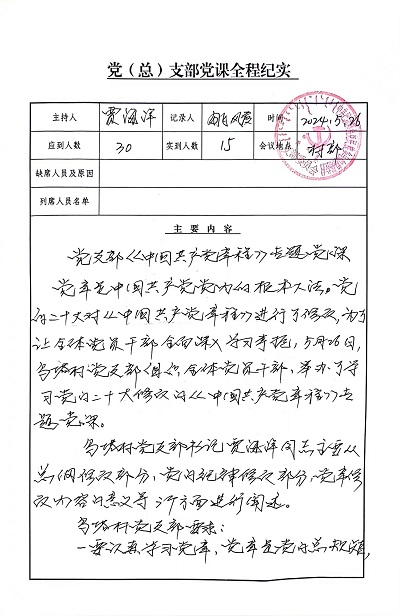 党（总）支部党课全程纪实
主持人 贾海洋 记录人 时间 2024.5.26
应到人数 30 实到人数 15 会议地点 村部
缺席人员及原因
列席人员名单
主要内容
党支部《中国共产党章程》专题党课
党章是中国共产党党内的根本大法。党
的二十大对《中国共产党章程》进行了修改，为了
让全体党员干部全面深入学习掌握，5月26日，
村党支部组织全体党员干部，举办了学
习党的二十大修改的《中国共产党章程》专
题党课。
村党支部书记贾海洋同志主要从
总纲修改部分，党的纪律修改部分，党章修
改内容的意义等 方面进行阐述。
村党支部要求：
一要认真学习党章，党章是党的总规矩，